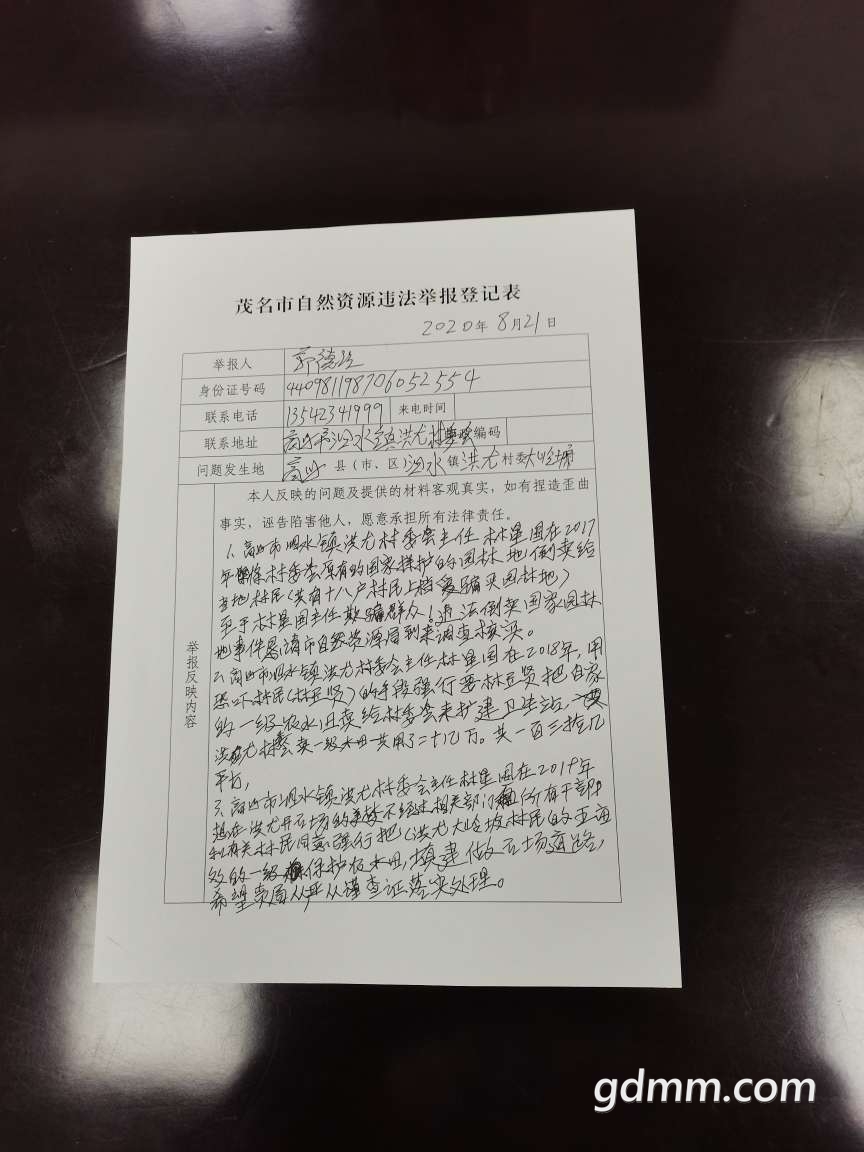 茂名市自然资源违法举报登记表
2020年8月21日
举报人 郭德
身份证号码 440981198706052554
联系电话 13542341999 来电时间
联系地址 高州市泗水镇洪尤村 编码
问题发生地 高州县（市、区）泗水镇洪尤村委大岭坡
举报反映内容
本人反映的问题及提供的材料客观真实，如有捏造歪曲
事实，诬告陷害他人，愿意承担所有法律责任。
1、高州市泗水镇洪尤村委会主任林星国在2017
年将村委会原有的国家保护的园林地倒卖给
当地村民（共有十八户村民上档受骗买园林地）
至于林星国主任欺骗群众！违法倒卖国家园林
地事件恳请市自然资源局到来调查核实。
2、高州市泗水镇洪尤村委会主任林星国在2018年，用
恐吓村民（林 贤）的手段强行要林 贤把自家
的一级农水田卖给村委会来扩建卫生站，
洪尤村 卖一级水田一共用了二十几万。共一百三拾几
平方，
3、高州市泗水镇洪尤村委会主任林星国在2019年
想在洪尤开石场的 不经过相关部门 所有干部
和有关村民同意强行把（洪尤大岭坡村民的
的一级保护农水田，填建做石场道路，
希望贵局从严从谨查证落实处理。
gdmm.com